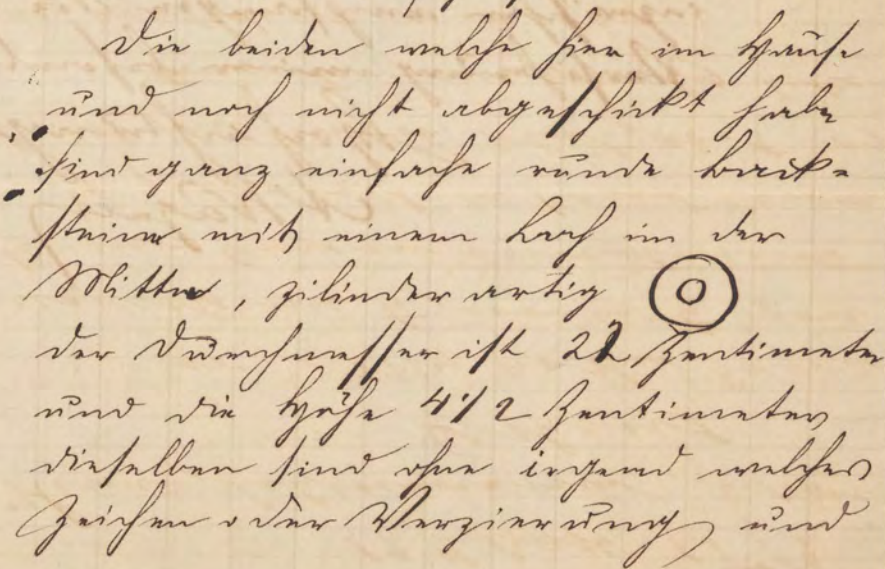 Die beiden welche hier im Hause
und noch nicht abgeschickt habe
sind ganz einfache runde Back-
steine mit einem Loch in der
Mitte, zilinder artig
der Durchmesser ist 22 Zentimeter
und die Höhe 4 1/2 Zentimeter
dieselben sind ohne irgend welches
Zeichen oder Verzierung und